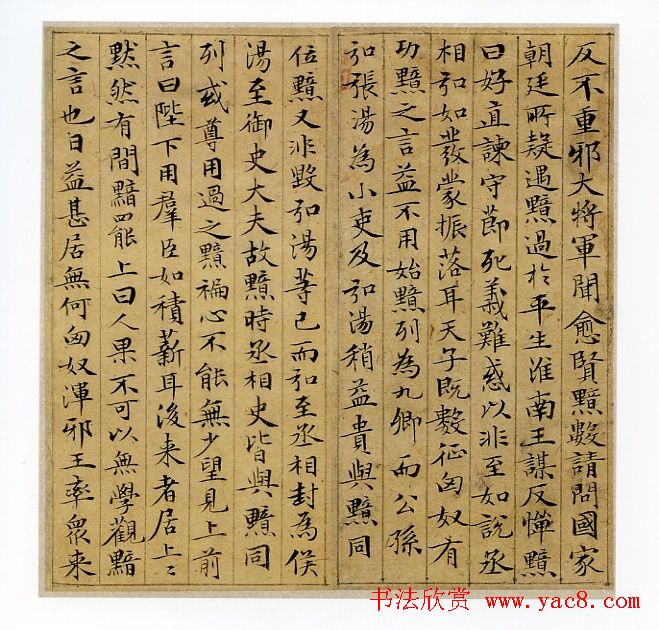 反不重邪大將軍聞愈賢黯數請問國家
朝廷所疑遇黯過於平生淮南王謀反憚黯
曰好直諫守節死義難惑以非至如說丞
相弘如發蒙振落耳天子既數征匈奴有
功黯之言益不用始黯列為九卿而公孫
弘張湯為小吏及弘湯稍益貴與黯同
位黯又非毀弘湯等已而弘至丞相封為侯
湯至御史大夫故黯時丞相史皆與黯同
列或尊用過之黯褊心不能無少望見上前
言曰陛下用羣臣如積薪耳後来者居上〻
黙然有間黯罷上曰人果不可以無學觀黯
之言也日益甚居無何匈奴渾邪王率眾来
书法欣赏 www.yac8.com